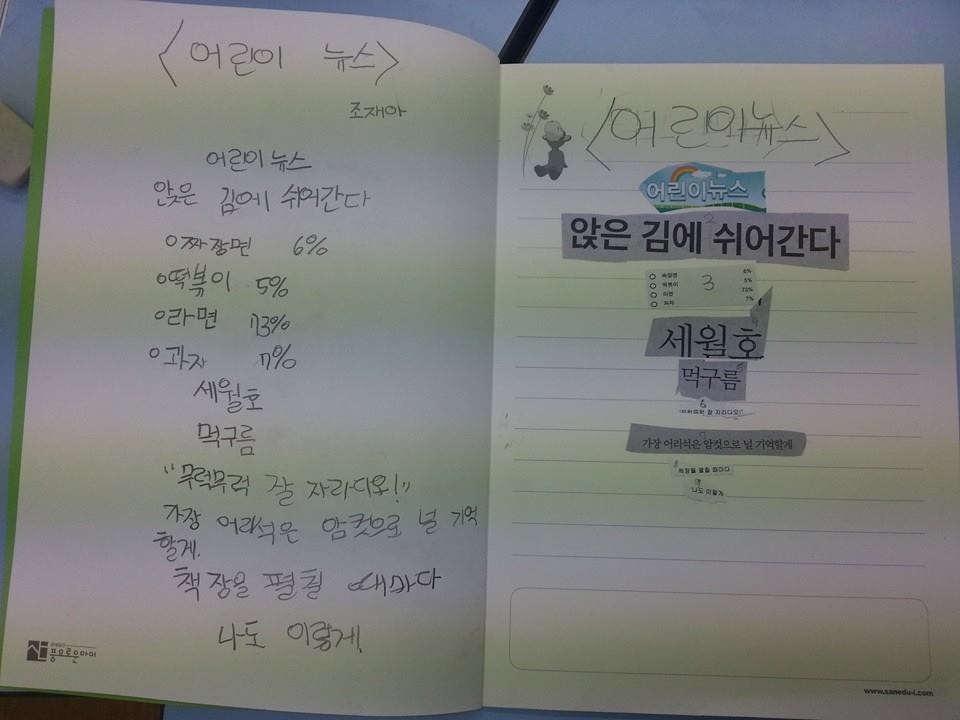 <어린이 뉴스>
조재아
어린이 뉴스
앉은 김에 쉬어간다
○짜장면 6%
○떡볶이 5%
○라면 73%
○과자 7%
세월호
먹구름
"무럭무럭 잘 자라다오!"
가장 어리석은 암컷으로 널 기억
할게.
책장을 펼칠 때마다
나도 이렇게.
풍요로운아이
<어린이뉴스>
어린이뉴스
앉은 김에 쉬어간다
2
○ 짜장면 6%
○ 떡볶이 5%
○ 라면 73%
○ 과자 7%
3
세월호
먹구름
6
"무럭무럭 잘 자라다오!"
가장 어리석은 암컷으로 널 기억할게
8
책장을 펼칠 때마다
9
나도 이렇게
www.sanedu-i.com